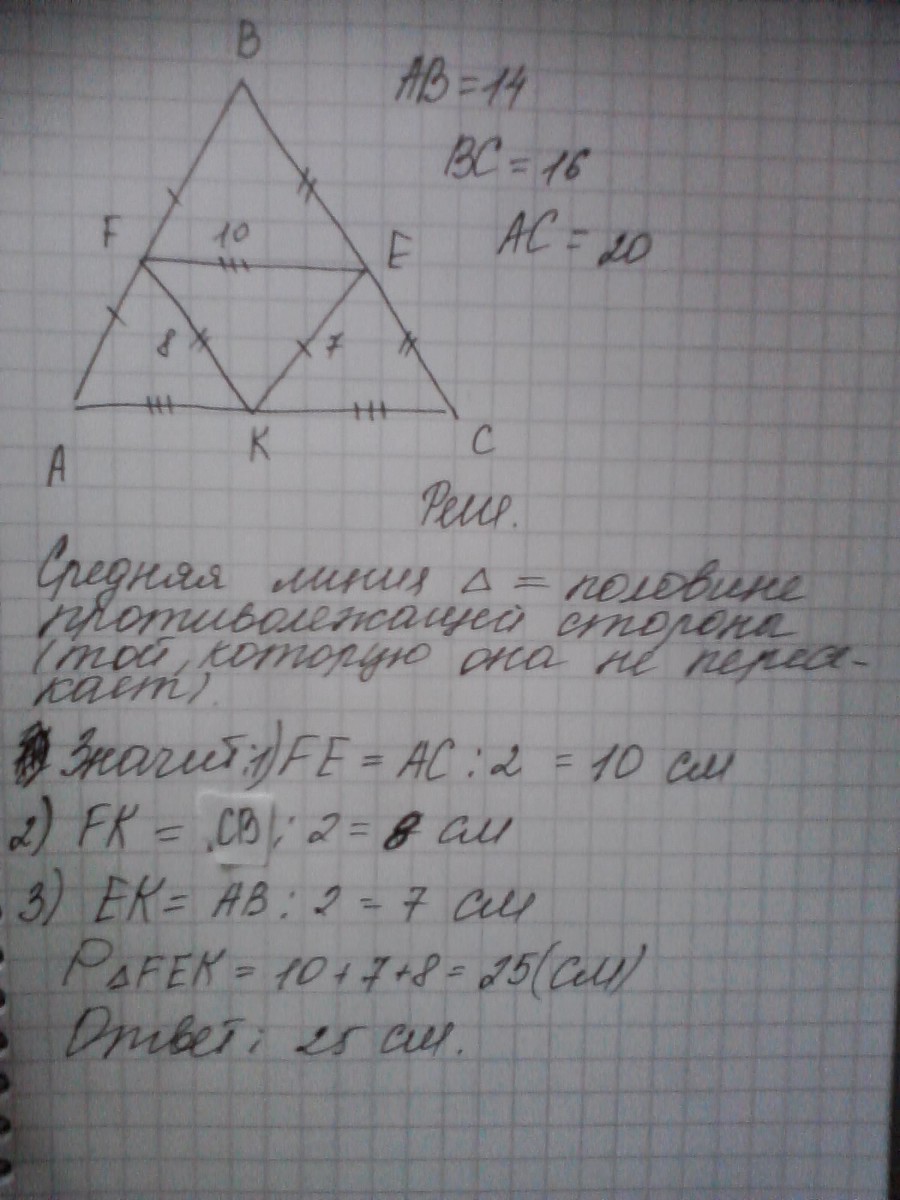 B
AB = 14
BC = 16
F
10
E
AC = 20
8
7
A
K
C
Реш.
Средняя линия △ = половине
противолежащей стороны
(той, которую она не пересе-
кает).
Значит: 1) FE = AC : 2 = 10 см
2) FK = CB : 2 = 8 см
3) EK = AB : 2 = 7 см
P△FEK = 10 + 7 + 8 = 25 (см)
Ответ: 25 см.